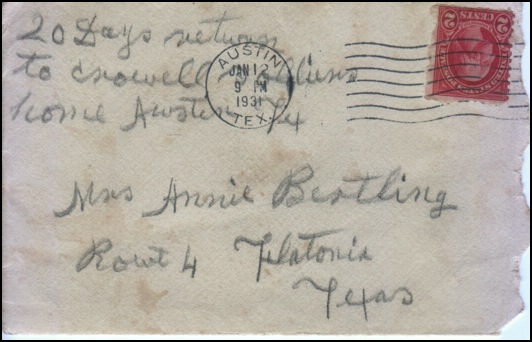 20 Days return
to crowell
home Austin Tex
AUSTIN
JAN 12
9 PM
1931
TEX.
2 CENTS 2
Mrs Annie Bertling
Rowt 4 Flatonia
Texas